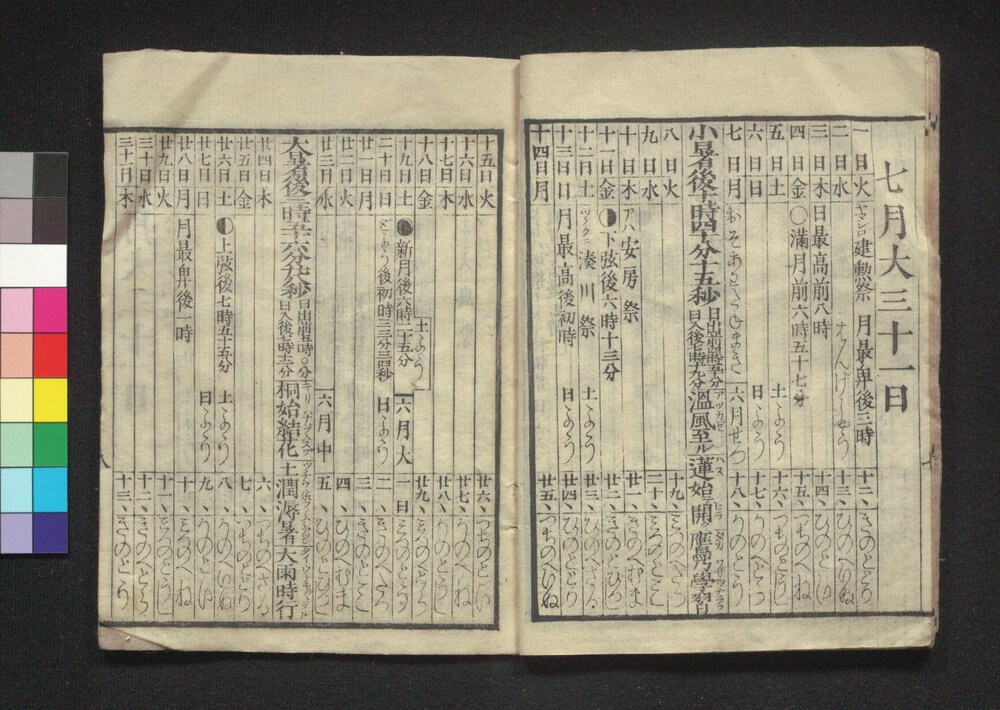 七月大三十一日
一日火 ヤマシロ 建勲祭 月最卑後三時 十二、きのとどり
二日水 はんげしやう 十三、ひのへいぬ
三日木 日最高前八時 十四、ひのとゐ
四日金 〇満月前六時五十七分 十五、つちのへね
五日土 土ようう 十六、つちのとうし
六日日 日ようう 十七、かのへとら
七日月 六月せつ 十八、かのとう
八日火 十九、みづのへたつ
九日水 二十、みづのとみ
十日木 アハ 安房祭 廿一、きのへむま
十一日金 下弦後六時十三分 廿二、きのとひつじ
十二日土 湊川祭 土ようう 廿三、ひのへさる
十三日日 月最高後初時 日ようう 廿四、ひのととり
十四日月 廿五、つちのへいぬ
小暑後十時四十分十五秒 日出前四時 日入後七時 溫風至ル 蓮始開ク 鷹乃學習
十五日火 廿六、つちのとゐ
十六日水 廿七、かのへね
十七日木 廿八、かのとうし
十八日金 土よう 廿九、みづのへとら
十九日土 新月後六時二十五分 六月大 一日 みづのとう
二十日日 どよう後初時三三分三四秒 日ようう 二、きのへたつ
廿一日月 三、きのとみ
廿二日火 四、ひのへむま
廿三日水 六月中 五、ひのとひつじ
大暑後三時 日出前五時〇分 日入後七時 桐始結花 土潤溽暑 大雨時行
廿四日木 六、つちのへさる
廿五日金 七、つちのととり
廿六日土 上弦後七時五十五分 土ようう 八、かのへいぬ
廿七日日 日ようう 九、かのとゐ
廿八日月 月最卑後一時 十、みづのへね
廿九日火 十一、みづのとうし
三十日水 十二、きのへとら
三十一日木 十三、きのとう